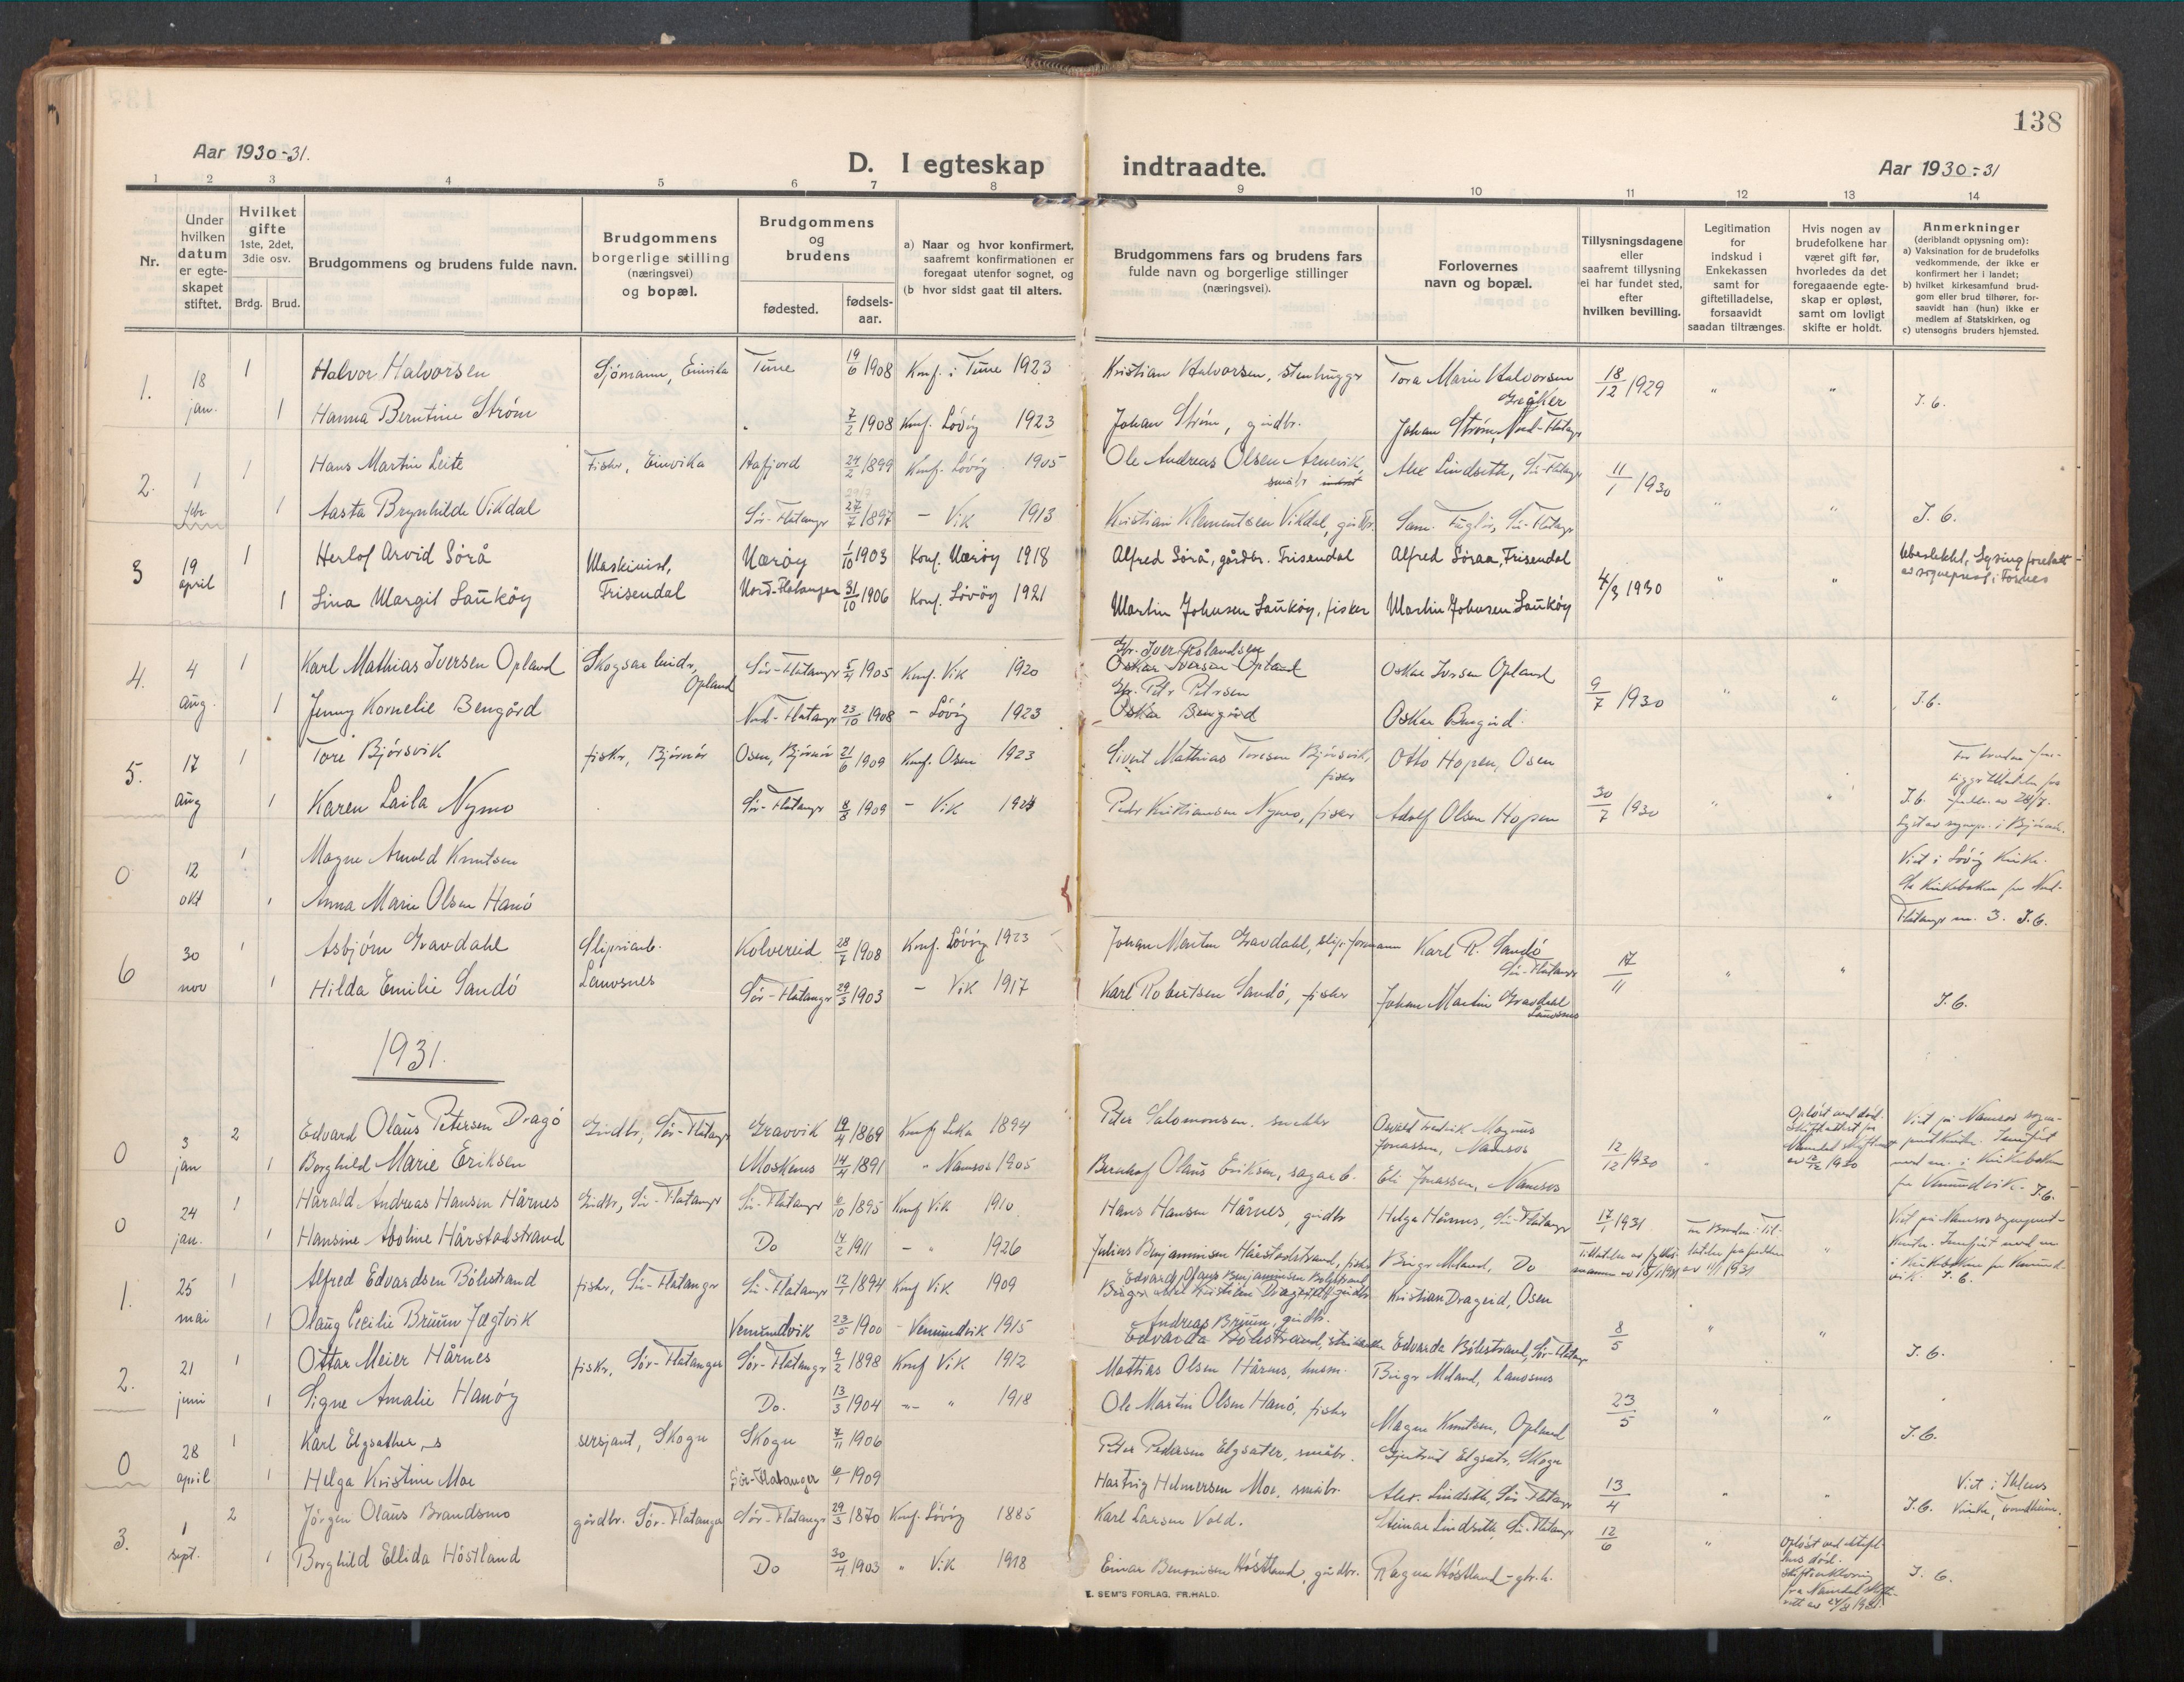 138
Aar 1930-31.
D. I egteskap indtraadte.
Aar 1930-31
1 2 3 4 5 6 7 8 9 10 11 12 13 14
Nr.
Under hvilken datum er egte-skapet stiftet.
Hvilket gifte 1ste, 2det, 3die osv.
Brdg. Brud.
Brudgommens og brudens fulde navn.
Brudgommens borgerlige stilling (næringsvei) og bopæl.
Brudgommens og brudens
fødested. fødsels-aar.
a) Naar og hvor konfirmert, saafremt konfirmationen er foregaat utenfor sognet, og
(b hvor sidst gaat til alters.
Brudgommens fars og brudens fars fulde navn og borgerlige stillinger (næringsvei).
Forlovernes navn og bopæl.
Tillysningsdagene eller saafremt tillysning ei har fundet sted, efter hvilken bevilling.
Legitimation for indskud i Enkekassen samt for giftetilladelse, forsaavidt saadan tiltrænges.
Hvis nogen av brudefolkene har været gift før, hvorledes da det foregaaende egte-skap er opløst, samt om lovligt skifte er holdt.
Anmerkninger (deriblandt opjysning om):
a) Vaksination for de brudefolks vedkommende, der ikke er konfirmert her i landet;
b) hvilket kirkesamfund brud-gom eller brud tilhører, for-saavidt han (hun) ikke er medlem af Statskirken, og
c) utensogns bruders hjemsted.
1. 18 jan. 1 Halvor Halvorsen Sjömann, Einvika Tune 19/6 1908 Konf. i Tune 1923 Kristian Halvorsen, stenhugger Tora Marie Halvorsen Greåker 18/12 1929 " " I. G.
1 Hanna Berntine Strøm 7/2 1908 Konf. Lövöy 1923 Johan Strøm, grdbr. Johan Strøm, Nord-Flatanger
2. 1 febr. 1 Hans Martin Leite Fisker, Einvika Aafjord 24/2 1899 Konf. Lövöy 1905 Ole Andreas Olsen Arnevik, småbr. Alex Lindseth, Sör-Flatanger 11/1 1930 " "
1 Aasta Brynhilde Vikdal Sör-Flatanger 27/7 1897 - Vik 1913 Kristian Klementsen Vikdal, grdbr. Sör-Flatanger I. G.
3 19 april 1 Herlof Arvid Sörå Maskinist, Frisendal Nærøy 1/10 1903 Konf. Nærøy 1918 Alfred Sörå, gårdbr. Frisendal Alfred Söraa, Frisendal 4/3 1930 " " Ubeslektet, Lysing foretatt av sogneprest i Fosnes
1 Lina Margit Lauköy Nord-Flatanger 31/10 1906 Konf. Lövöy 1921 Martin Johnsen Lauköy, fisker Martin Johnsen Lauköy
4. 4 aug. 1 Karl Mathias Iversen Opland Skogsarbeider, Opland Sör-Flatanger 5/4 1905 Konf. Vik 1920 Gbr. Iver Rolandsen
Oskar Iversen Opland Oskar Iversen Opland 9/7 1930 " " I. G.
1 Jenny Kornelie Bengård Nord-Flatanger 23/10 1908 - Lövöy 1923 Gbr. Petr Petersen
Oskar Bengård Oskar Bengård.
5. 17 aug 1 Tore Bjørsvik fisker, Bjørnør Osen, Bjørnør 21/6 1909 Konf. Osen 1923 Sivert Mathias Toresen Bjørsvik, fisker Otto Hopen, Osen 30/7 1930 " "
1 Karen Laila Nymo Sör-Flatanger 8/8 1909 - Vik 1924 Peder Kristiansen Nymo, fisker Adolf Olsen Hopen I. G.
0 12 okt 1 Magne Arnold Knutsen Viet i Lövöy Kirke.
1 Anna Marie Olsen Hanö Se Kirkeboken for Nord-Flatanger nr. 3. I. G.
6 30 nov 1 Asbjørn Gravdahl Sliperiarb. Lauvsnes Kolvereid 28/7 1908 Konf. Lövöy 1923 Johan Martin Gravdahl, slip. formann Karl R. Sandö Sör-Flatanger 17/11 " "
1 Hilda Emilie Sandö Sör-Flatanger 29/3 1903 - Vik 1917 Karl Robertsen Sandö, fisker Johan Martin Gravdahl Lauvsnes I. G.
1931.
0 3 jan 2 Edvard Olaus Petersen Dragö Grdbr., Sör-Flatanger Gravvik 19/4 1869 Konf Leka 1894 Peter Salomonsen Osvald Fredrik Magnus Jonassen, Namsos 12/12 1930 "
1 Borghild Marie Eriksen Moskenes 14/4 1891 " Namsos 1905 Bernhof Olaus Eriksen, sagarb. Eli Jonassen, Namsos I. G.
0 24 jan. 1 Harald Andreas Hansen Hårnes Grdbr., Sör-Flatanger Sör-Flatanger 6/10 1895 Konf Vik 1910 Hans Hansen Hårnes, grdbr Helga Hårnes, Sör-Flatanger 17/1 1931
1 Hansine Aboline Hårstadstrand Do 14/2 1911 - " 1926 Julius Benjaminsen Hårstadstrand, fisker Birger Meland, Do I. G.
1. 25 mai 1 Alfred Edvardsen Bölestrand fisker, Sör-Flatanger Sör-Flatanger 12/1 1894 Konf Vik 1909 Edvard Olaus Benjaminsen Bölestrand Kristian Drageid, Osen 8/5 " "
1 Olaug Cecilie Bruun Jægtvik Vemundvik 23/5 1900 - Vemundvik 1915 Andreas Bruun, grdbr. Edvarda Bölestrand, Sör-Flatanger I. G.
2. 21 juni 1 Ottar Meier Hårnes fisker, Sör-Flatanger Sör-Flatanger 9/2 1898 Konf Vik 1912 Mathias Olsen Hårnes, husm. Birger Meland, Lauvsnes 23/5 " "
1 Signe Amalie Hanöy Do. 13/3 1904 -"- " 1918 Ole Martin Olsen Hanö, fisker Magne Knutsen, Opland I. G.
0 28 april 1 Karl Elgsæther, s sersjant, Skogn Skogn 7/11 1906 Peter Pedersen Elgsæter, småbr. Gjertrud Elgsæter, Skogn 13/4 " "
1 Helga Kristine Moe Sör-Flatanger 6/1 1909 Hartvig Helmersen Moe, småbr. Alex. Lindseth, Sör-Flatanger I. G. Viet i Ihlens Kirke, Trondheim.
3. 1 sept. 2 Jørgen Olaus Brandsmo gårdbr. Sör-Flatanger Sör-Flatanger 29/3 1870 Konf. Lövöy 1885 Karl Larsen Vold. Steinar Lindseth, Sör-Flatanger 12/6 "
1 Borghild Ellida Höstland Do 30/4 1903 " Vik 1918 Einar Benonisen Höstland, gårdbr. Ragna Höstland I. G.
E. SEM'S FORLAG, FR.HALD.